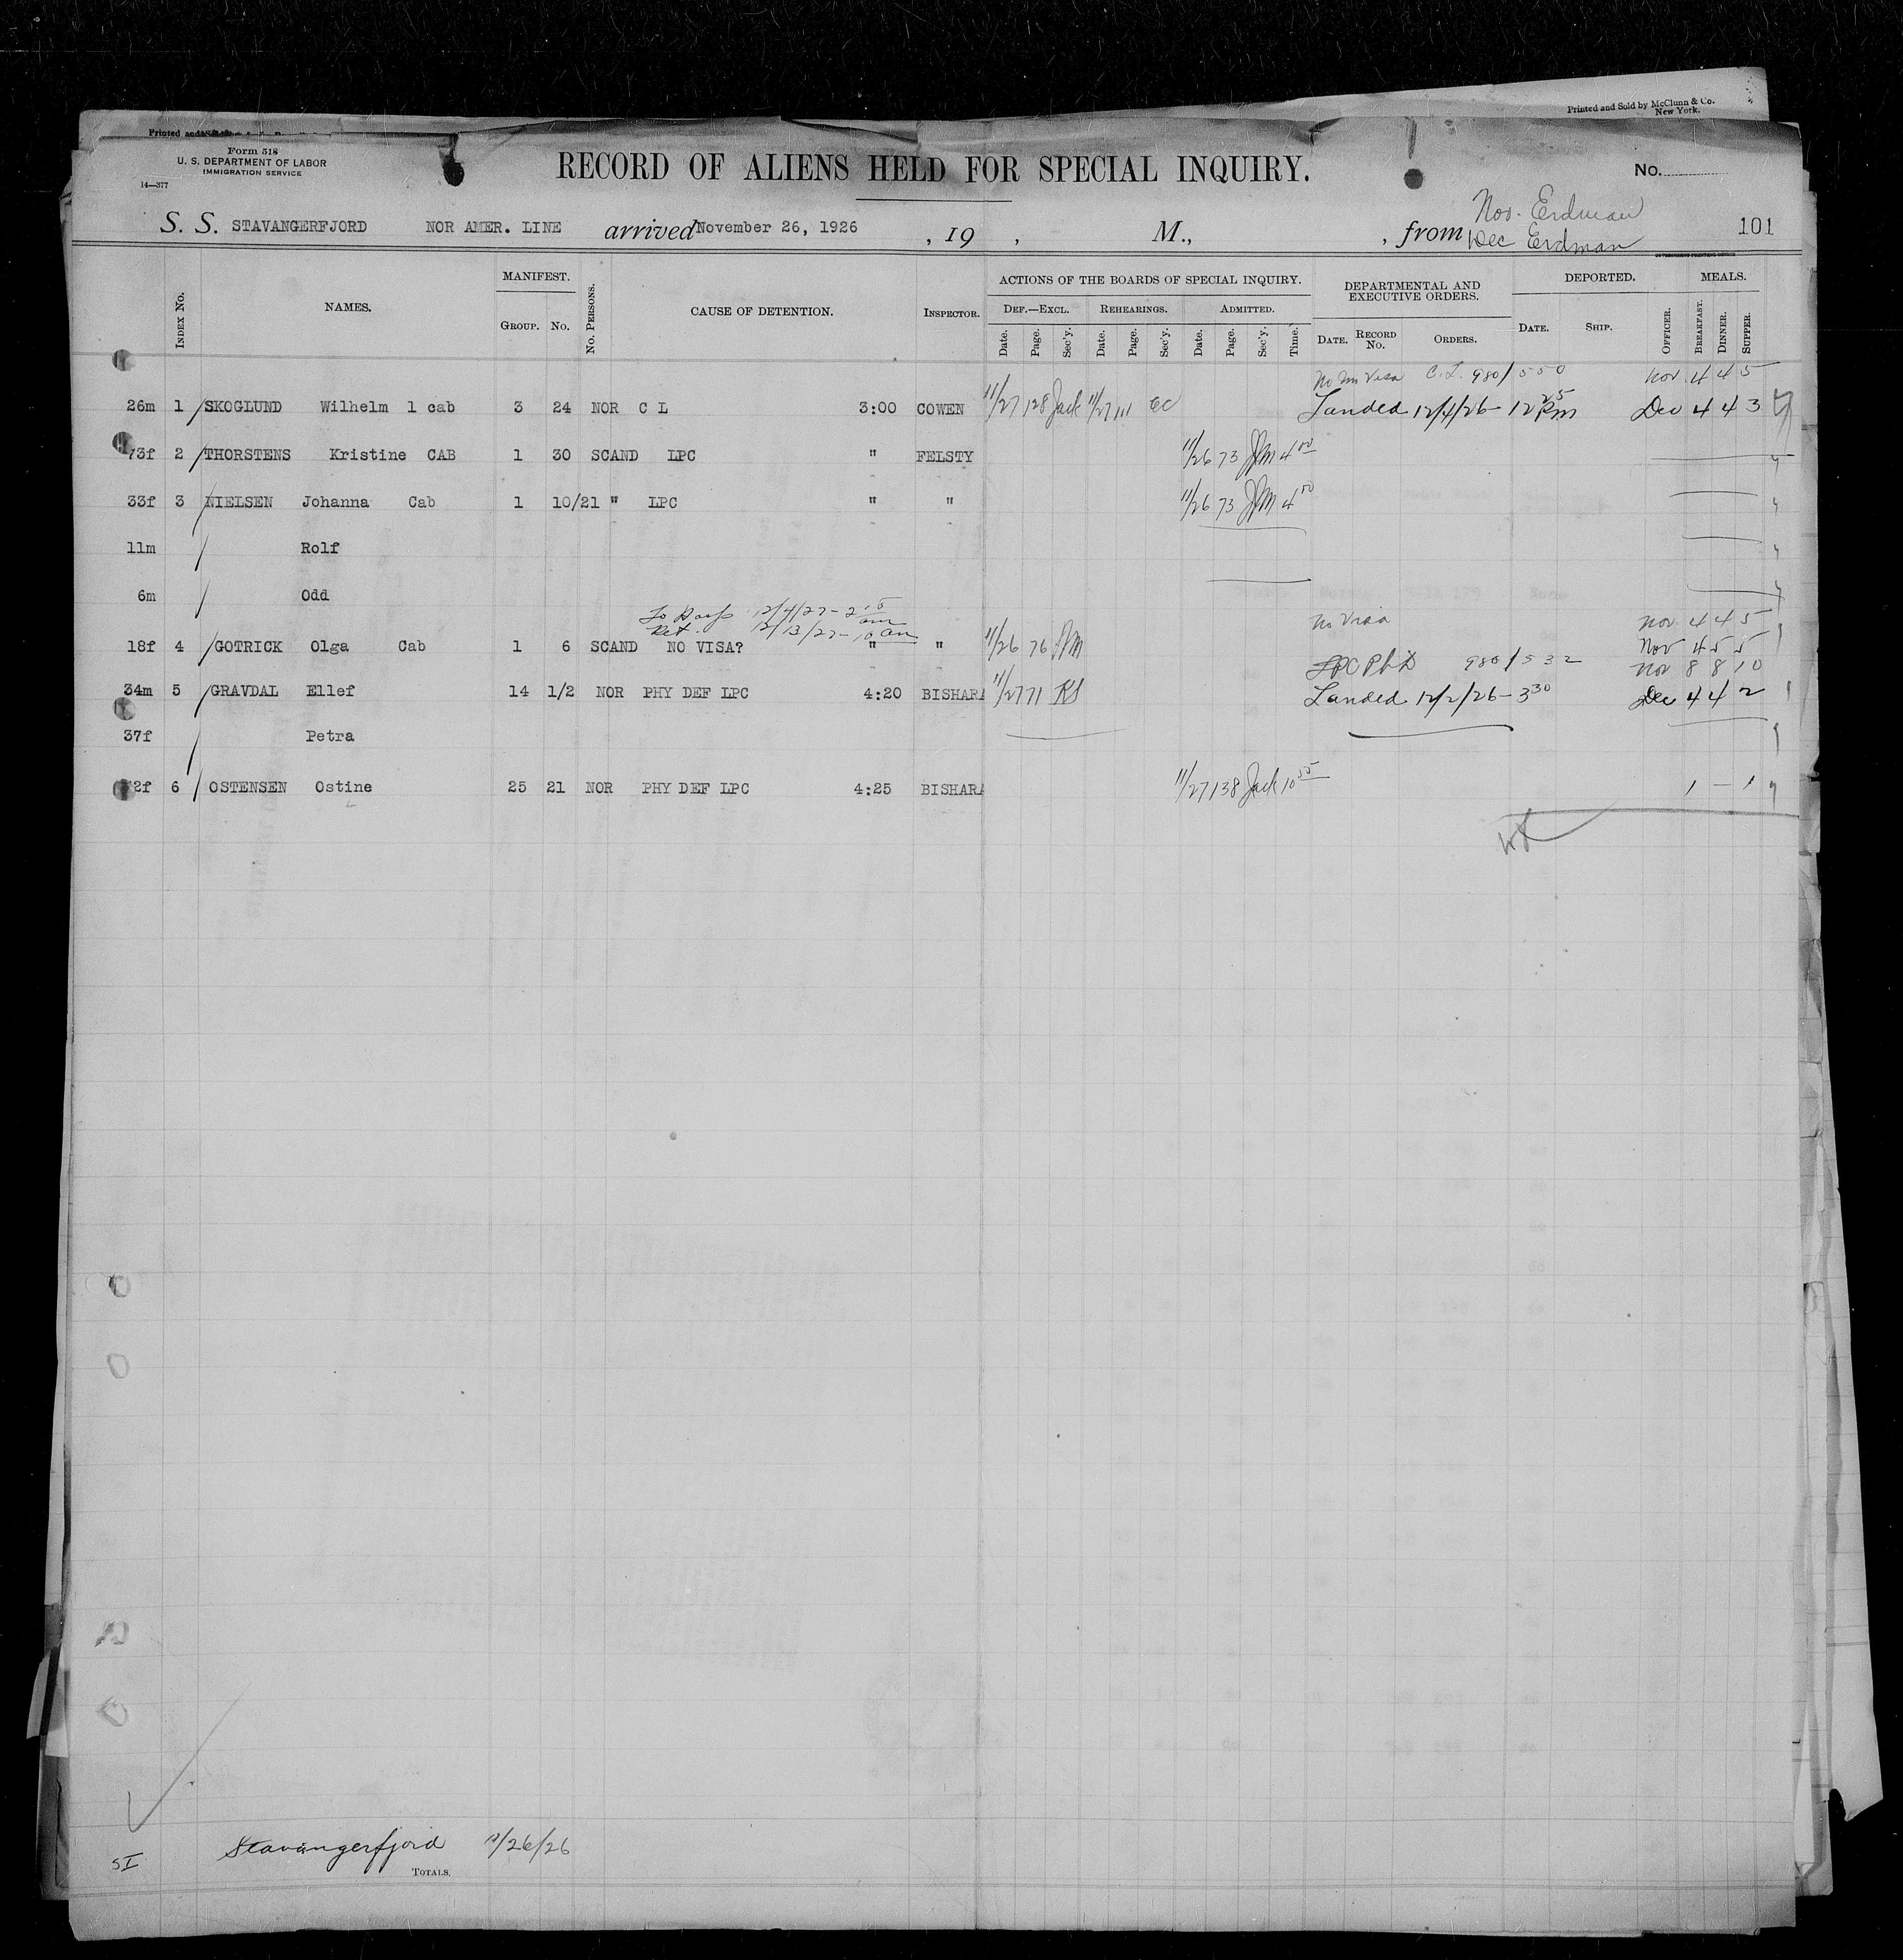 Printed and Sold by McClunn & Co.
New York.
Form 518
U. S. DEPARTMENT OF LABOR
IMMIGRATION SERVICE
14—377
RECORD OF ALIENS HELD FOR SPECIAL INQUIRY.
No.
S. S. STAVANGERFJORD NOR AMER. LINE arrived November 26, 1926 , 19 , M., , from Nov. Erdman
Dec Erdman
101
Index No. NAMES. MANIFEST. GROUP. No. No. PERSONS. CAUSE OF DETENTION. INSPECTOR.
ACTIONS OF THE BOARDS OF SPECIAL INQUIRY.
DEF.—EXCL. REHEARINGS. ADMITTED.
Date. Page. Sec'y. Date. Page. Sec'y. Date. Page. Sec'y. Time.
DEPARTMENTAL AND EXECUTIVE ORDERS.
DATE. RECORD No. ORDERS.
DEPORTED.
DATE. SHIP. OFFICER.
MEALS.
BREAKFAST. DINNER. SUPPER.
C.L. 980/550 Nov 4 4 5
26m 1 SKOGLUND Wilhelm 1 cab 3 24 NOR C L 3:00 COWEN 11/27 128 Jack 11/27 111 EC Landed 12/4/26- 12 25 Pm Dec 4 4 3
73f 2 THORSTENS Kristine CAB 1 30 SCAND LPC " FELSTY 11/26 73 JM 4 00
33f 3 NIELSEN Johanna Cab 1 10/21 " LPC " " 11/26 73 JM 4 00
11m Rolf
6m Odd
12/4/27- 2
Ret. 12/13/27- 10 am
No Visa Nov. 4 4 5
18f 4 GOTRICK Olga Cab 1 6 SCAND NO VISA? " " 11/26 76 Nov 4 5 5
LPC PhD 980/532 Nov 8 8 10
34m 5 GRAVDAL Ellef 14 1/2 NOR PHY DEF LPC 4:20 BISHARA 11/27 71 KS Landed 12/2/26- 3 30 Dec 4 4 2
37f Petra
2f 6 OSTENSEN Ostine 25 21 NOR PHY DEF LPC 4:25 BISHARA 11/27 138 Jack 10 55 1 — 1
SI Stavangerfjord 11/26/26
TOTALS.